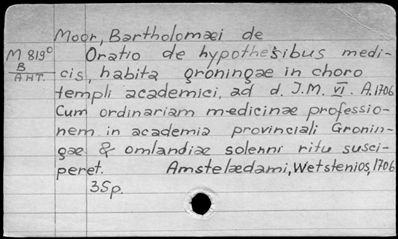 Moor, Bartholomæi de
M 819° Oratio de hypothesibus medi-
B
AHT. cis, habita groningæ in choro
templi academici, ad d. I.M. VI. A.1706
Cum ordinariam medicinæ professio-
nem in academia provinciali Gronin-
gæ & omlandiæ solenni ritu susci-
peret. Amstelædami, Wetstenios, 1706
35p.